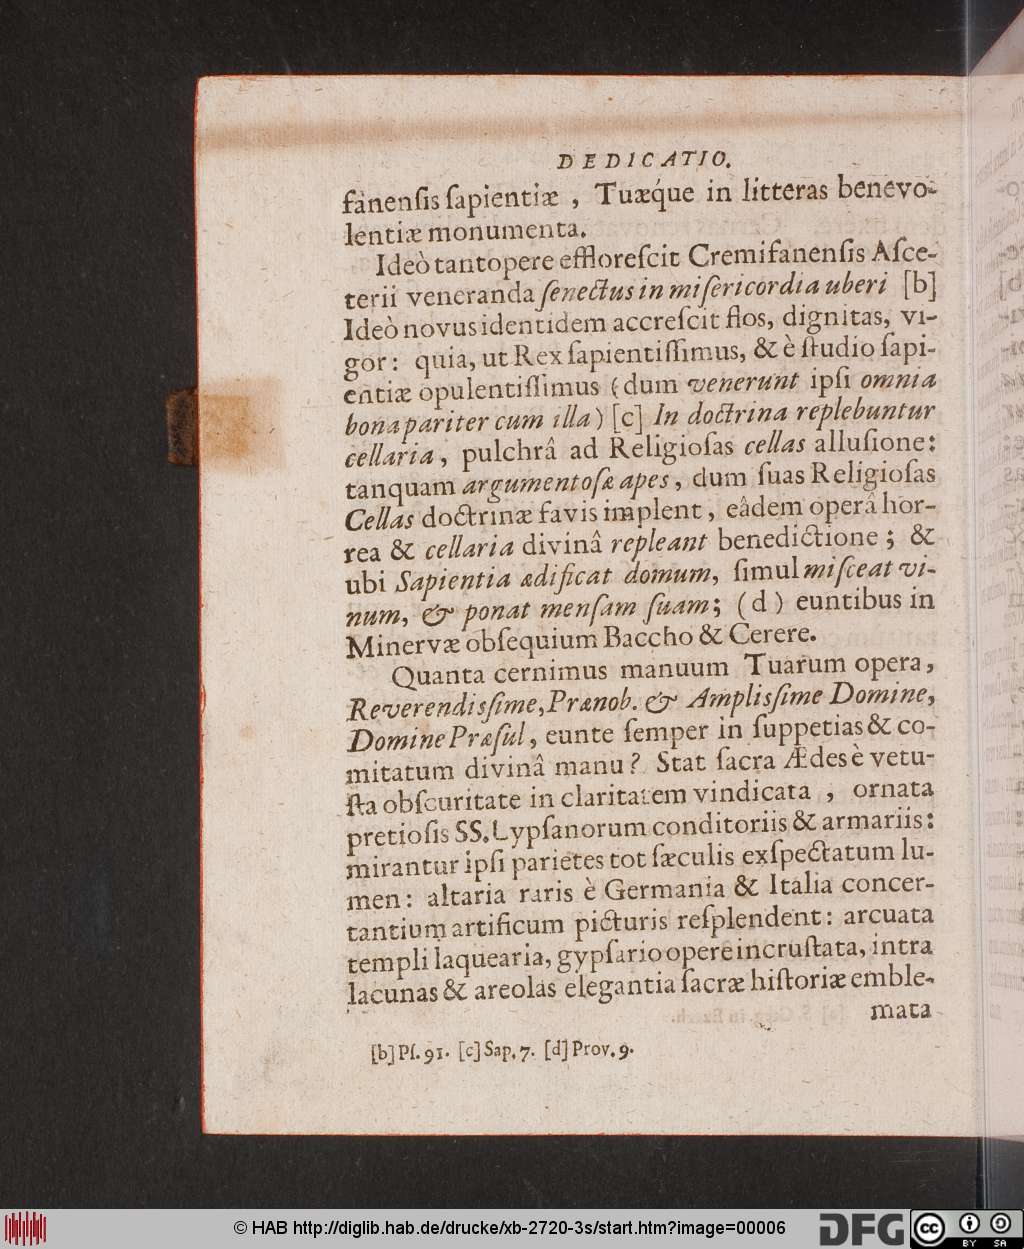 DEDICATIO.
fanenſis ſapientiæ , Tuæq́ue in litteras benevo-
lentiæ monumenta.
Ideò tantopere effloreſcit Cremifanenſis Aſce-
terii veneranda ſenectus in miſericordia uberi [b]
Ideò novus identidem accreſcit flos, dignitas, vi-
gor: quia, ut Rex ſapientiſſimus, & è ſtudio ſapi-
entiæ opulentiſſimus (dum venerunt ipſi omnia
bona pariter cum illa) [c] In doctrina replebuntur
cellaria, pulchrâ ad Religioſas cellas alluſione:
tanquam argumentoſæ apes, dum ſuas Religioſas
Cellas doctrinæ favis implent, eâdem operâ hor-
rea & cellaria divinâ repleant benedictione; &
ubi Sapientia ædificat domum, ſimul miſceat vi-
num, & ponat menſam ſuam; (d) euntibus in
Minervæ obſequium Baccho & Cerere.
Quanta cernimus manuum Tuarum opera,
Reverendiſſime, Prænob. & Ampliſſime Domine,
Domine Præſul, eunte ſemper in ſuppetias & co-
mitatum divinâ manu? Stat ſacra Ædes è vetu-
ſta obſcuritate in claritatem vindicata , ornata
pretioſis SS. Lypſanorum conditoriis & armariis:
mirantur ipſi parietes tot ſæculis exſpectatum lu-
men: altaria raris è Germania & Italia concer-
tantium artificum picturis reſplendent: arcuata
templi laquearia, gypſario opere incruſtata, intra
lacunas & areolas elegantia ſacræ hiſtoriæ emble-
mata
[b] Pſ. 91. [c] Sap. 7. [d] Prov. 9.
© HAB http://diglib.hab.de/drucke/xb-2720-3s/start.htm?image=00006
DFG
cc
BY SA